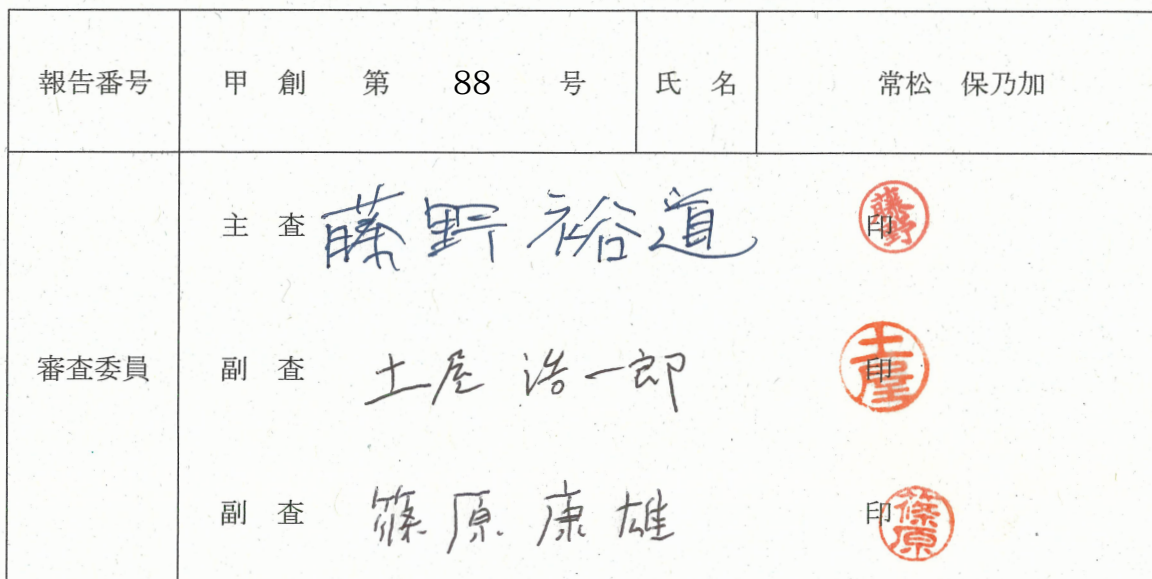 報告番号 甲 創 第 88 号 氏 名 常松 保乃加
主 査 藤野 裕道 印 藤野
審査委員 副 査 土屋 浩一郎 印 土屋
副 査 篠原 康雄 印 篠原